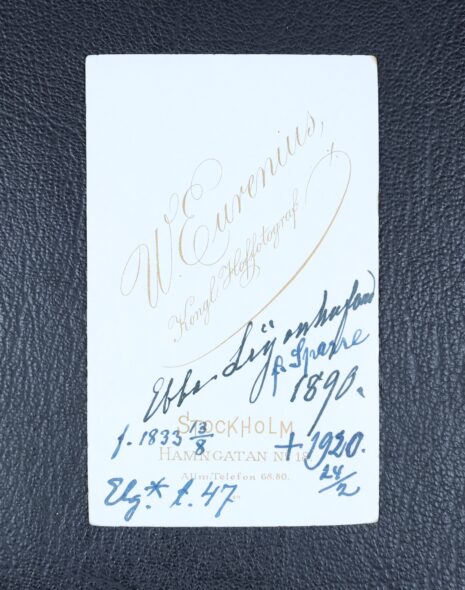 W. Eurenius,
Kongl. Hoffotograf
Ebba Liljenhufvud
f. Sparre
1890.
STOCKHOLM
f. 1833 13/8
HAMNGATAN Nº 18
+ 1920.
24/2
Allm. Telefon 68.80.
t. 47